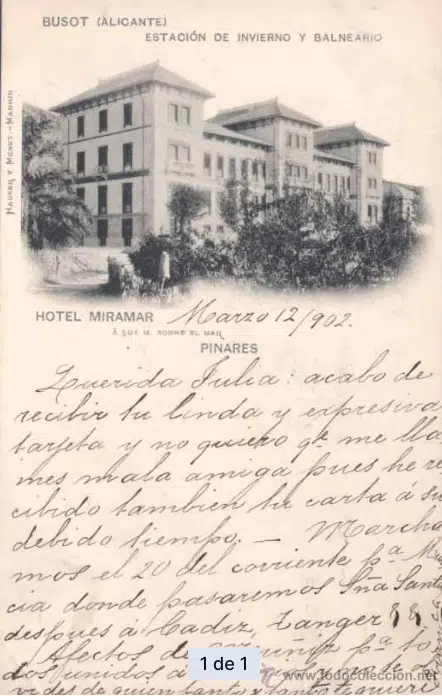 BUSOT (ALICANTE)
ESTACIÓN DE INVIERNO Y BALNEARIO
HAUSER Y MENET.-MADRID
HOTEL MIRAMAR Marzo 12/902.
Á 501 M. SOBRE EL MAR
PINARES
Querida Julia: acabo de
recibir tu linda y expresiva
tarjeta y no quiero qe me lla
mes mala amiga pues he re
cibido tambien tu carta á su
debido tiempo. — Marcha
mos el 20 del corriente pa Mur
cia donde pasaremos Sna Santa
despues á Cadiz, Tanger
Afectos de pa to
dos unidos a
vides le quien tanto
1 de 1
todocoleccion.net